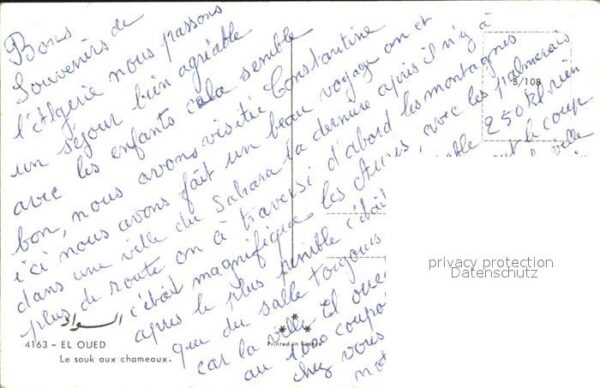 Bons
Souvenirs de
l'Algérie nous passons
un séjour bien agréable
avec les enfants cela semble
bon, nous avons visitée Constantine
ici nous avons fait un beau voyage on et
dans une ville du Sahara la dernière après il n'y à
plus de route on à traversé d'abord les montagnes
c'était magnifique les Aurès, avec les palmerais
après le plus penible c'était
que du sable toujours
car la ville El Oued
au 1000 coupo
chez vous
not
ble 250 K rien
t le coup
ville
B/108
السواد
4163 - EL OUED
Le souk aux chameaux.
Printed in
privacy protection
Datenschutz